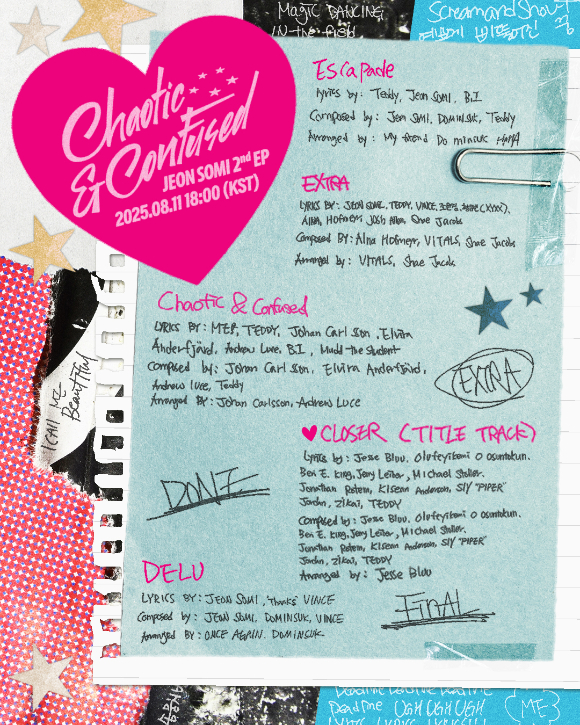 Magic DANCING
IN the field
ScreamandShout
Chaotic
& Confused
JEON SOMI 2nd EP
2025.08.11 18:00 (KST)
Escapade
lyrics by: Teddy, Jeon SOMI, B.I
Composed by: Jeon SOMI, DOMINSUK, Teddy
Arranged by: My friend Do minsuk HAHA
EXTRA
LYRICS BY: JEON SOMI, TEDDY, VINCE,
AlNA, Hofmeyr, Josh Allen, Shae Jacobs
Composed BY: Alna Hofmeyr, VITALS, Shae Jacobs
Arranged by: VITALS, Shae Jacobs
Chaotic & Confused
LYRICS BY: MEP, TEDDY, Johan Carlsson, Elvira
Anderfjärd, Andrew Luce, B.I, Mudd the student
Composed by: Johan Carlsson, Elvira Anderfjärd,
Andrew luce, Teddy
Arranged BY: Johan Carlsson, Andrew Luce
EXTRA
I CAll ME
Beautiful
CLOSER (TITLE TRACK)
Lyrics by: Jesse Bluu, Olufeyikemi O Osuntokun.
Ben E. King, Jerry Leiber, Michael Stoller.
Jonathan Rotem, Kisean Anderson, SIY "PIPER"
Jordan, Zikai, TEDDY
Composed by: Jesse Bluu, Olufeyikemi O Osuntokun.
Ben E. King, Jerry Leiber, Michael Stoller.
Jonathan Rotem, Kisean Anderson, SIY "PIPER"
Jordan, Zikai, TEDDY
Arranged by: Jesse Bluu
DONE
DELU
LYRICS BY: JEON SOMI, Thanks VINCE
Composed by: JEON SOMI, DOMINSUK, VINCE
Arranged BY: ONCE AGAIN. DOMINSUK
FinAL
Deadline UGH UGH UGH
(ME)